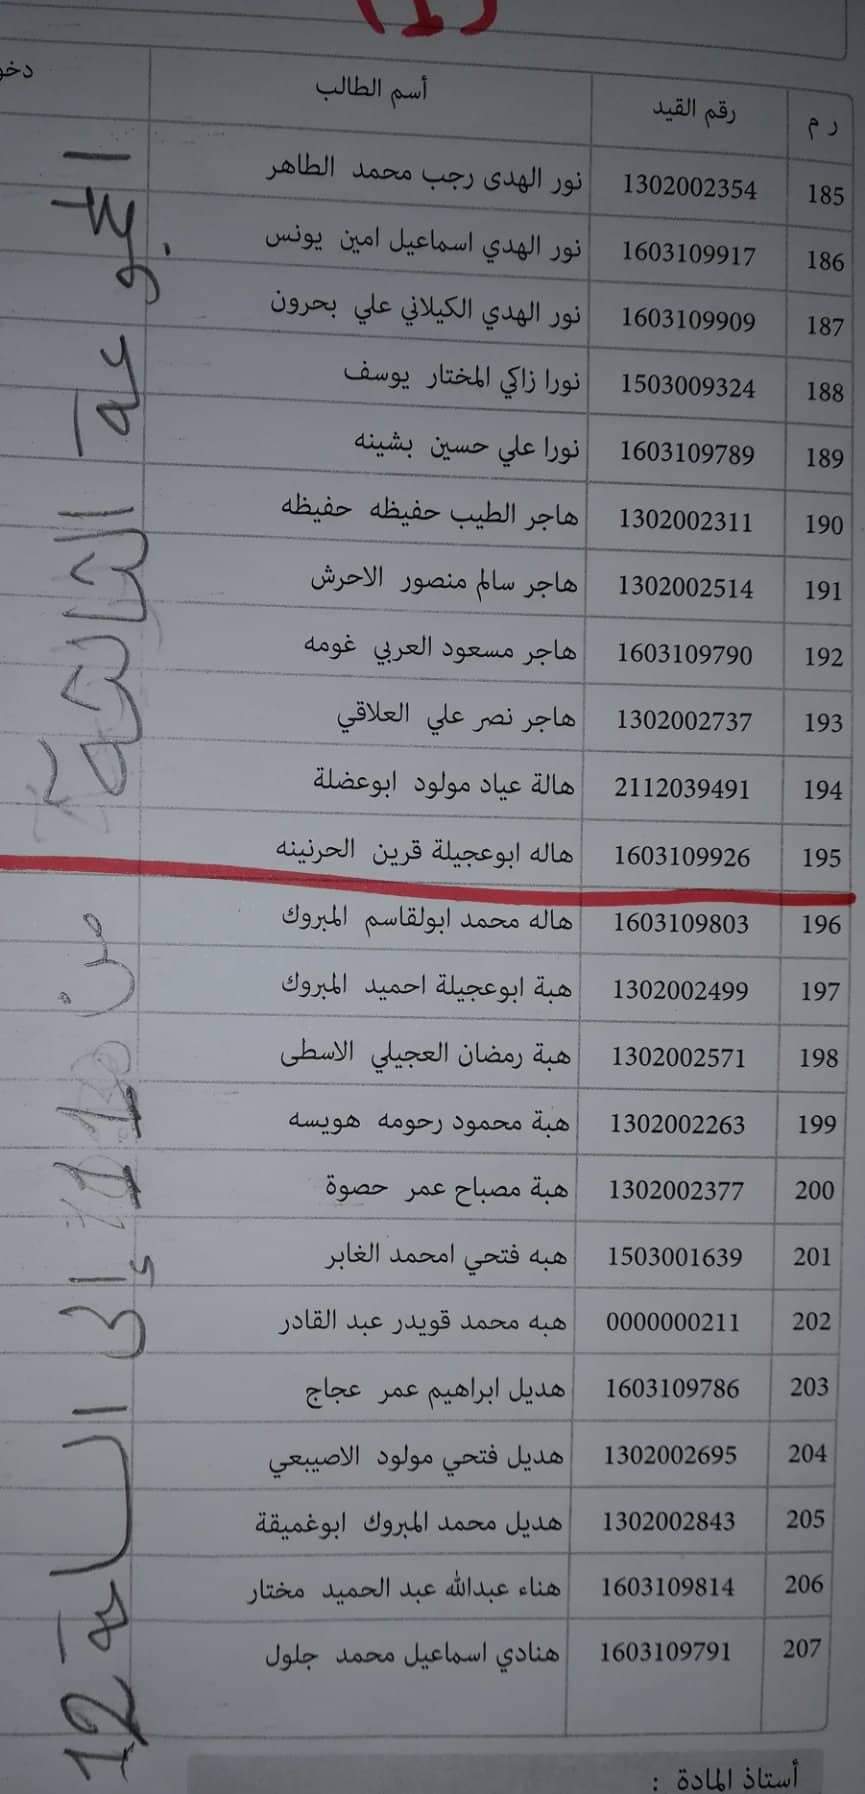 (1)
ر م	رقم القيد	أسم الطالب
185	1302002354	نور الهدى رجب محمد الطاهر
186	1603109917	نور الهدي اسماعيل امين يونس
187	1603109909	نور الهدي الكيلاني علي بحرون
188	1503009324	نورا زاكي المختار يوسف
189	1603109789	نورا علي حسين بشينه
190	1302002311	هاجر الطيب حفيظه حفيظه
191	1302002514	هاجر سالم منصور الاحرش
192	1603109790	هاجر مسعود العربي غومه
193	1302002737	هاجر نصر علي العلاقي
194	2112039491	هالة عياد مولود ابوعضلة
195	1603109926	هاله ابوعجيلة قرين الحرنينه
196	1603109803	هاله محمد ابولقاسم المبروك
197	1302002499	هبة ابوعجيلة احميد المبروك
198	1302002571	هبة رمضان العجيلي الاسطى
199	1302002263	هبة محمود رحومه هويسه
200	1302002377	هبة مصباح عمر حصوة
201	1503001639	هبه فتحي امحمد الغابر
202	0000000211	هبه محمد قويدر عبد القادر
203	1603109786	هديل ابراهيم عمر عجاج
204	1302002695	هديل فتحي مولود الاصيبعي
205	1302002843	هديل محمد المبروك ابوغميقة
206	1603109814	هناء عبدالله عبد الحميد مختار
207	1603109791	هنادي اسماعيل محمد جلول
المجموعة الثالثة من 11 إلى الساعة 12
أستاذ المادة :